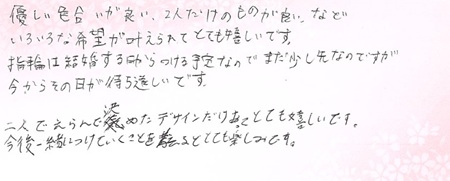 優しい色合いが良い、2人だけのものが良い、など
いろいろな希望が叶えられてとても嬉しいです。
指輪は結婚する日からつける予定なのでまだ少し先なのですが
今からその日が待ち遠しいです。
二人でえらんで決めたデザインだけあってとても嬉しいです。
今後一緒につけていくことを考えるととても楽しみです。